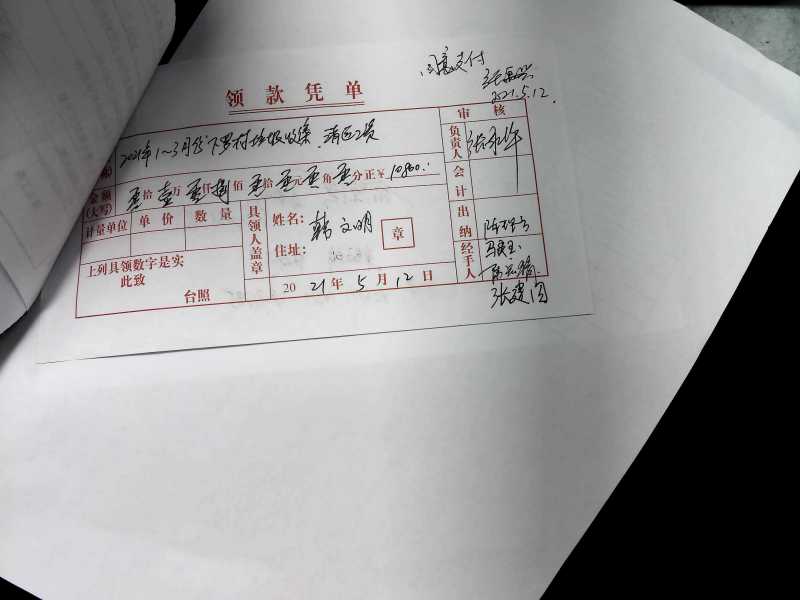 同意支付
2021.5.12.
领款凭单
审核
2021年1~3月份下罗村垃圾收集、清运工资
负责人
金额(大写) 零拾壹万零仟捌佰零拾零元零角零分正￥10800.
会计
计量单位 单价 数量
具领人盖章
姓名：韩文明
住址：
章
出纳
上列具领数字是实
此致
台照
2021年5月12日
经手人
张建国